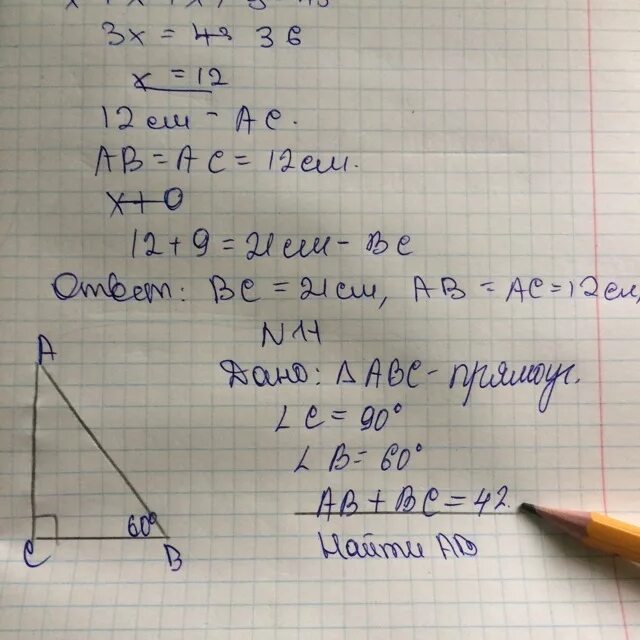 3x = 48 36
x = 12
12 см - AC.
AB = AC = 12 см.
x + 0
12 + 9 = 21 см - BC
Ответ: BC = 21 см, AB = AC = 12 см,
N 11
Дано: Δ ABC - прямоуг.
∠ C = 90°
∠ B = 60°
AB + BC = 42.
Найти AB
A
60°
C
B